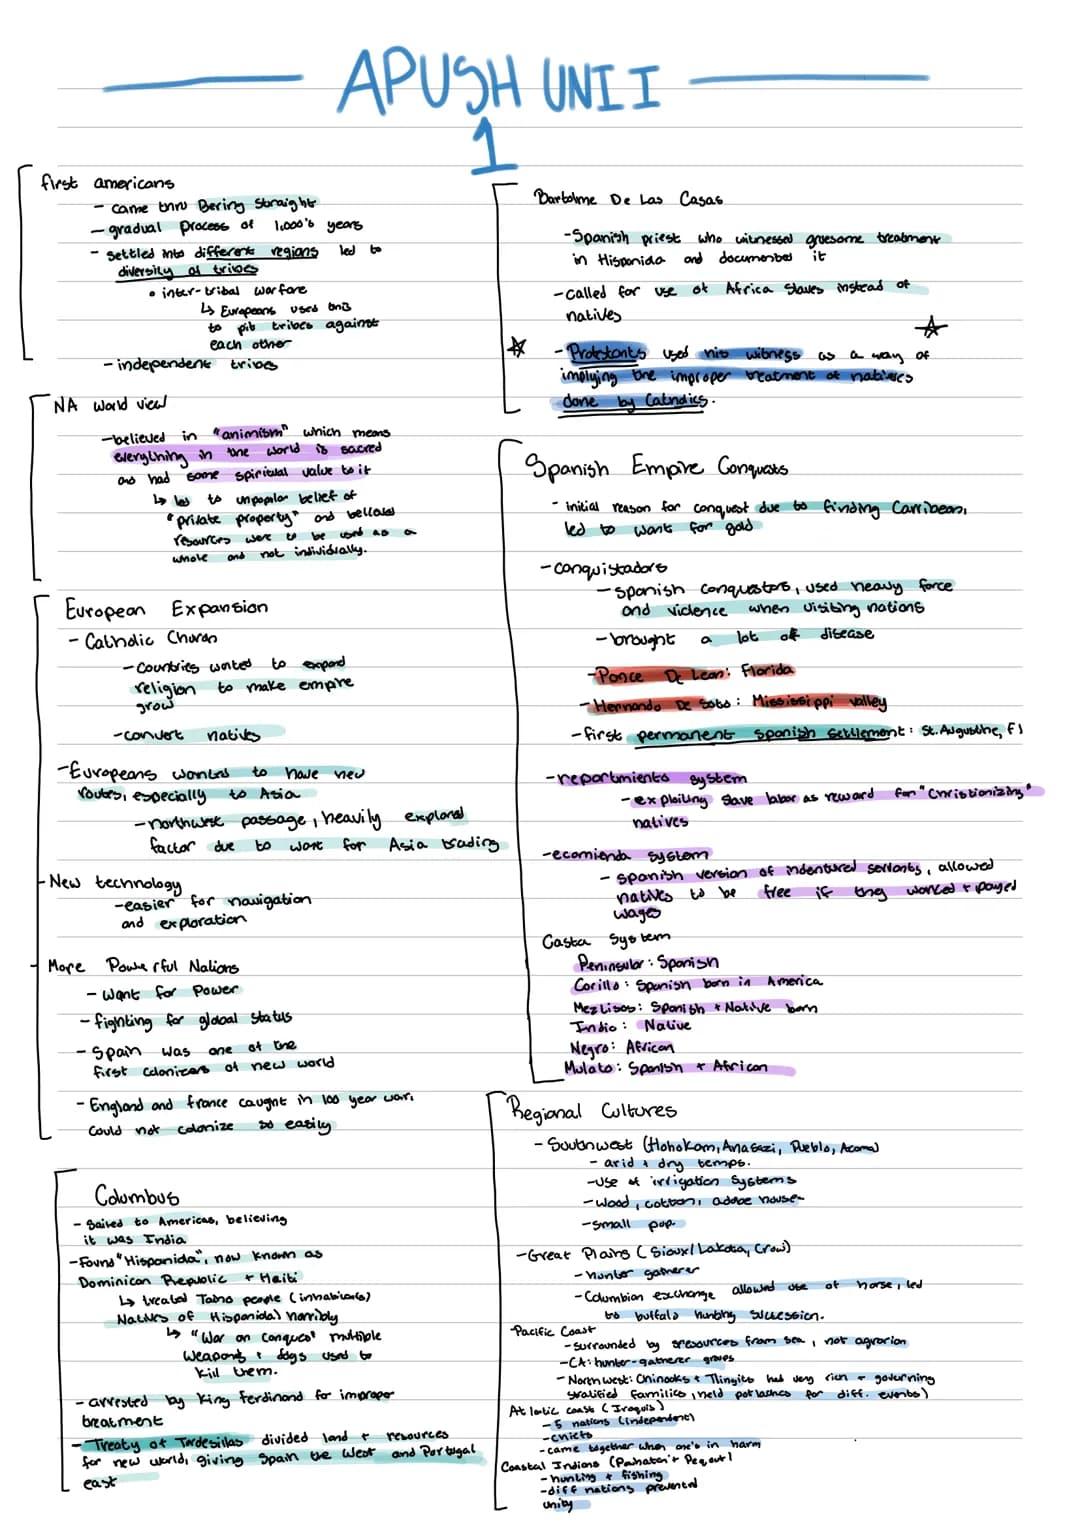 APUSH UNIT
1
first americans
- came thru Bering Straight
- gradual process of 1,000's years
- settled into different regions led to
diversity of tribes
• inter-tribal warfare
↳ Europeans used this
to pit tribes against
each other
- independent tribes
NA World view
- believed in "animism" which means
everything in the world is sacred
and had some spiritual value to it
↳ led to unpopular belief of
"private property" and believed
resources were to be used as a
whole and not individually.
European Expansion
- Catholic Church
- Countries wanted to expand
religion to make empire
grow
- convert natives
- Europeans wanted to have new
routes, especially to Asia
- northwest passage, heavily explored
factor due to want for Asia trading
- New technology
- easier for navigation
and exploration
- More Powerful Nations
- Want for Power
- fighting for global status
- Spain was one of the
first colonizers of new world
- England and france caught in 100 year war,
could not colonize so easily
Columbus
- Sailed to Americas, believing
it was India
- Found "Hispanida", now known as
Dominican Republic + Haiti
↳ treated Taino people (inhabitants)
Natives of Hispanida) horribly
↳ "War on Conquest" multiple
weapons + dogs used to
kill them.
- arrested by King Ferdinand for improper
treatment
- Treaty of Tordesillas divided land + resources
for new world, giving Spain the West and Portugal
east
Bartolme De Las Casas
- Spanish priest who witnessed gruesome treatment
in Hispanida and documented it
- called for use of Africa Slaves instead of
natives
- Protestants used his witness as a way of
implying the improper treatment of natives
done by Catholics.
Spanish Empire Conquests
- initial reason for conquest due to finding Carribean,
led to want for gold
- conquistadors
- spanish conquestors, used heavy force
and violence when visiting nations
- brought a lot of disease
- Ponce De Leon: Florida
- Hernando De Soto: Mississippi valley
- first permanent spanish settlement: St. Augustine, Fl
- reportmiento system
- exploiting slave labor as reward for "Christionizing"
natives
- ecomienda system
- spanish version of indentured servants, allowed
natives to be free if they worked + payed
wages
Casta System
Peninsular: Spanish
Corillo: Spanish born in America
Meztisos: Spanish + Native born
Indio: Native
Negro: African
Mulato: Spanish + African
Regional Cultures
- Southwest (Hohokam, Anasazi, Pueblo, Acoma)
- arid + dry temps.
- use of irrigation systems
- wood, cotton, adobe house
- small pop.
- Great Plains (Sioux/Lakota, Crow)
- hunter gatherer
- Columbian exchange allowed use of horse, led
to buffalo hunting succession.
Pacific Coast
- surrounded by sresources from sea, not agrarian
- CA: hunter-gatherer groups
- Northwest: Chinooks + Tlingits had very rich + governing
stratified families, held potlaches for diff. events)
Atlatic coast (Iroquis)
- 5 nations (independent)
- cheifs
- came together when one's in harm
Coastal Indians (Pequot)
- hunting + fishing
- diff nations prevented
unity